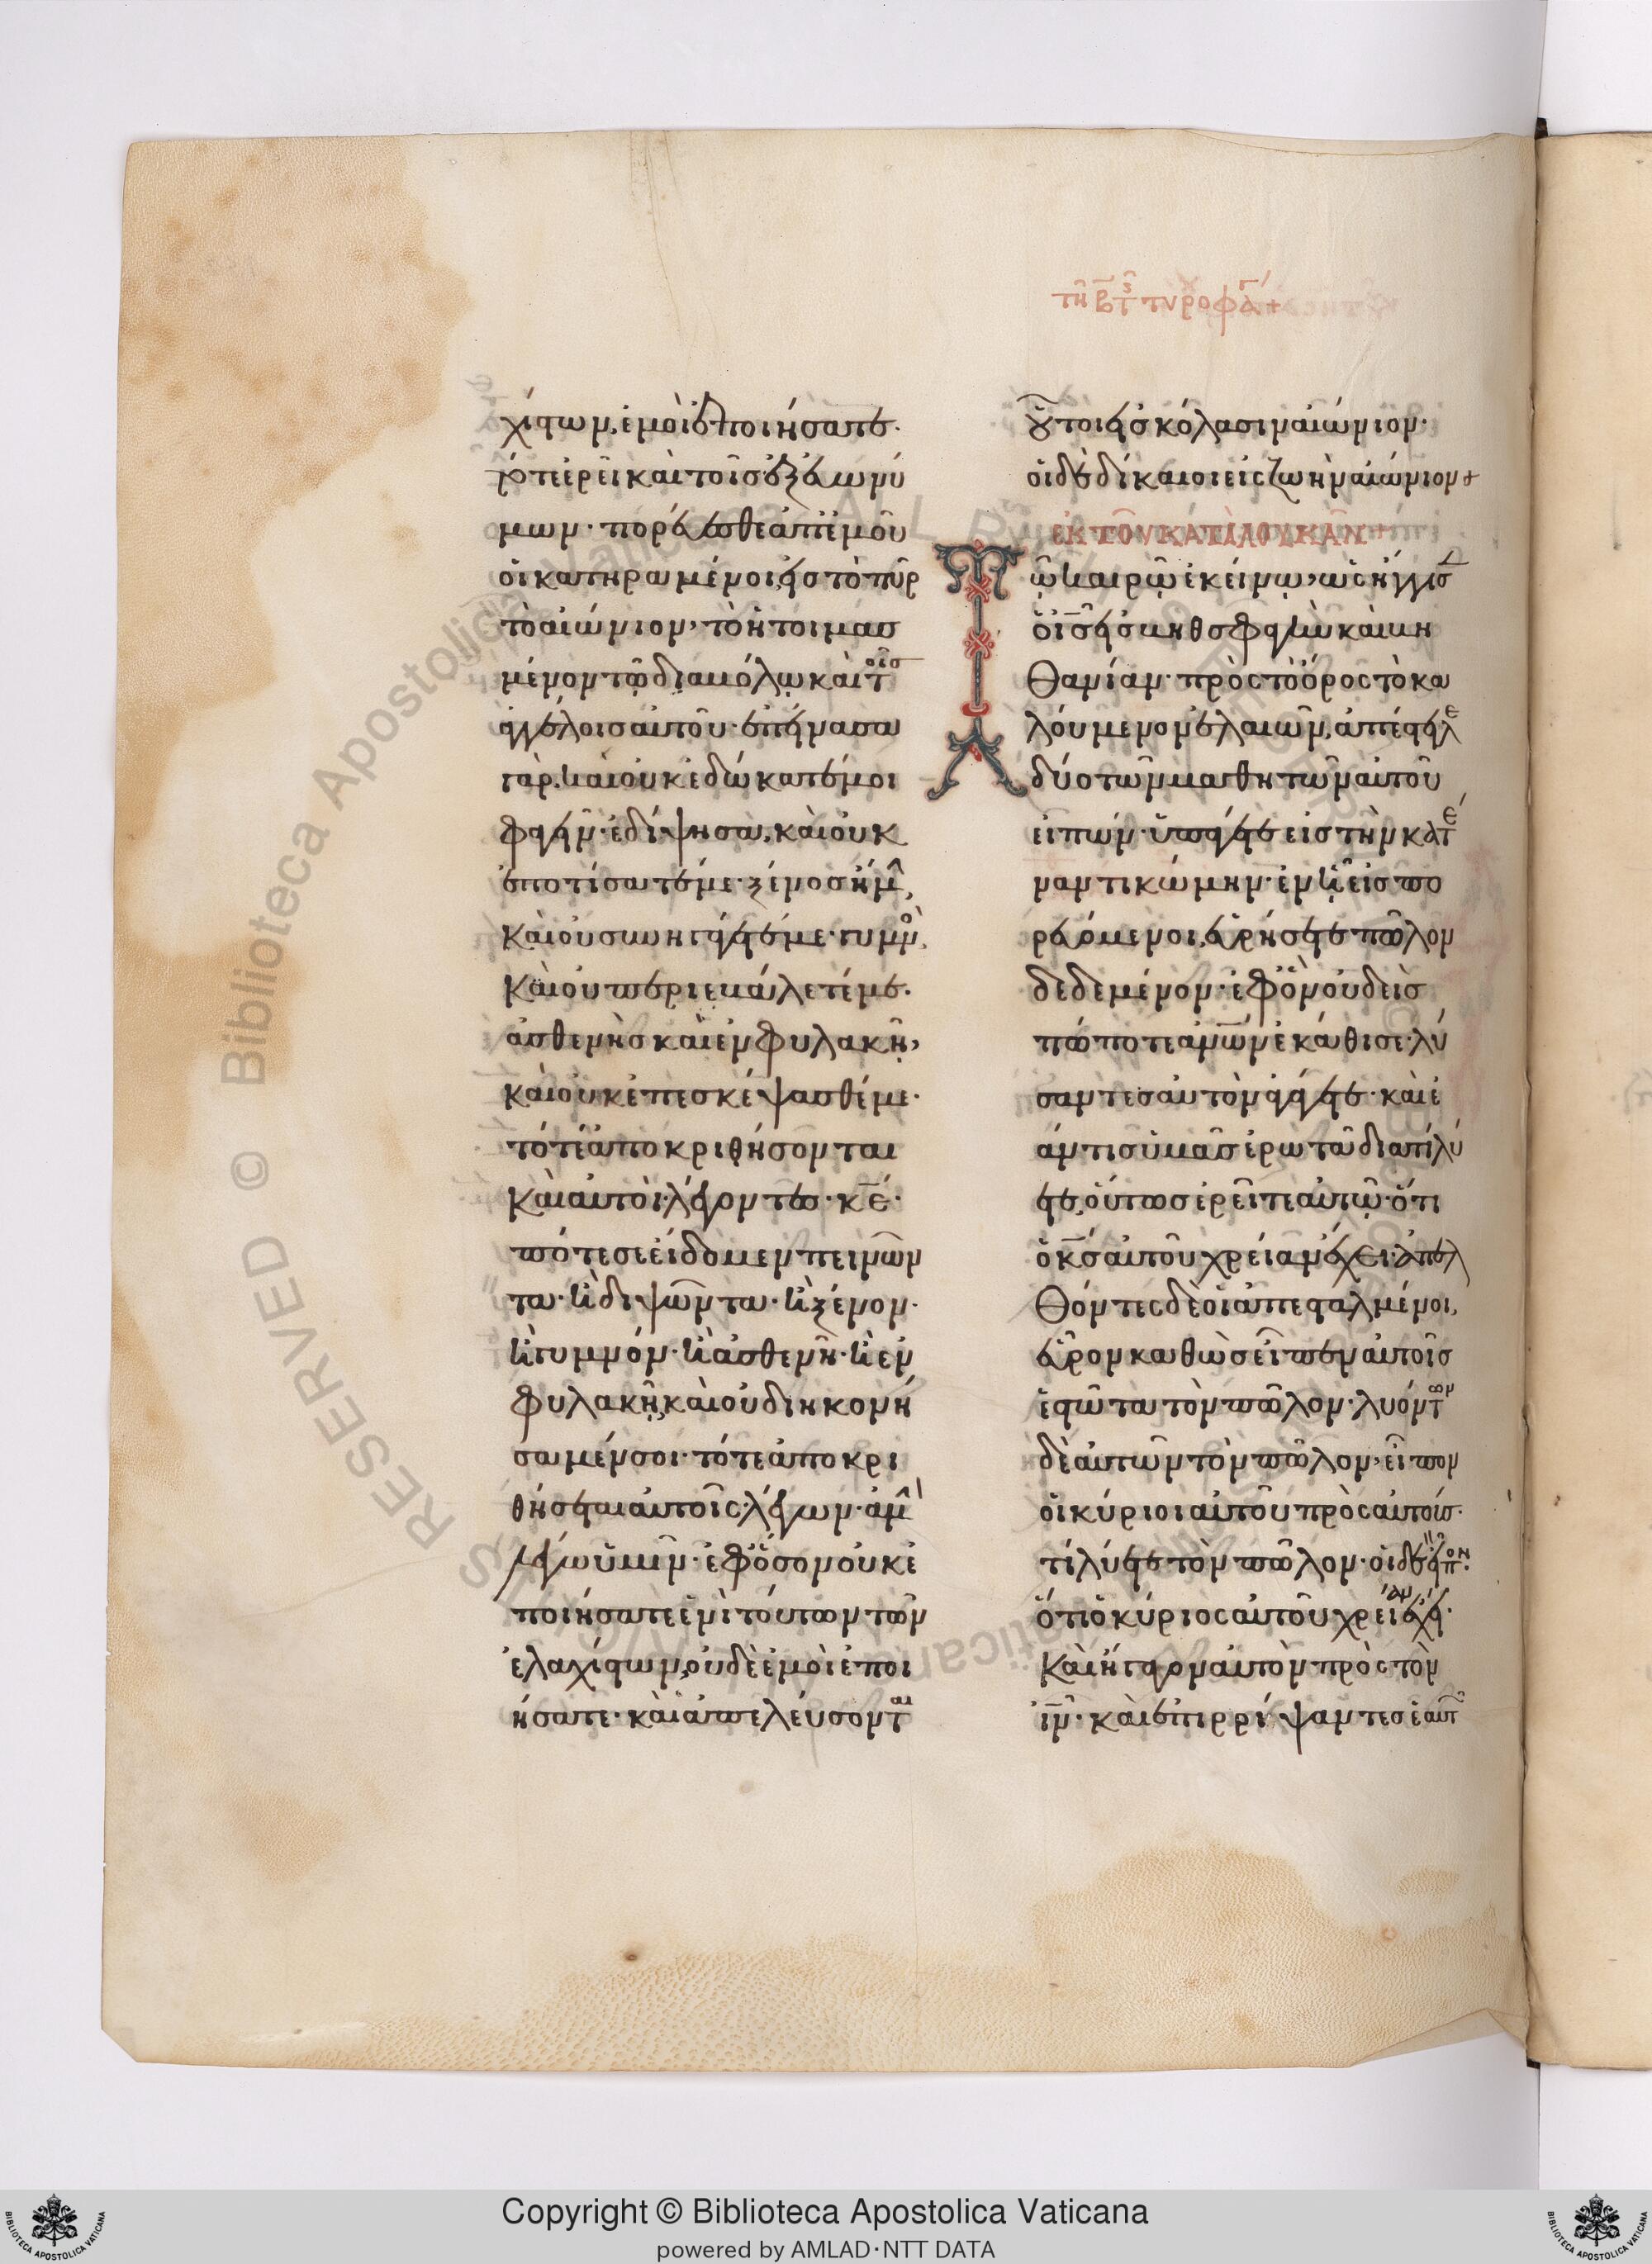 τῆ β τῆς τυροφά+
χίστων, ἐμοὶ ἐποιήσατε.
τότε ἐρεῖ καὶ τοῖς ἐξ εὐωνύ
μων· πορεύεσθε ἀπ' ἐμοῦ
οἱ κατηραμένοι, εἰς τὸ πῦρ
τὸ αἰώνιον, τὸ ἡτοιμασ
μένον τῶ διαβόλω καὶ τοῖς
ἀγγέλοις αὐτοῦ· ἐπείνασα
γὰρ, καὶ οὐκ ἐδώκατέ μοι
φαγεῖν· ἐδίψησα, καὶ οὐκ
ἐποτίσατέ με· ξένος ἤμην,
καὶ οὐ συνηγάγετέ με· γυμνὸς,
καὶ οὐ περιεβάλετέ με·
ἀσθενὴς καὶ ἐν φυλακῆ,
καὶ οὐκ ἐπεσκέψασθέ με·
τότε ἀποκριθήσονται
καὶ αὐτοὶ λέγοντες· κε·
πότε σε εἴδομεν πεινῶν
τα· ἢ διψῶντα· ἢ ξένον·
ἢ γυμνόν· ἢ ἀσθενῆ· ἢ ἐν
φυλακῆ, καὶ οὐ διηκονή
σαμέν σοι· τότε ἀποκρι
θήσεται αὐτοῖς λέγων· ἀμὴν
λέγω ὑμῖν· ἐφ' ὅσον οὐκ ἐ
ποιήσατε ἑνὶ τούτων τῶν
ἐλαχίστων, οὐδὲ ἐμοὶ ἐποι
ήσατε· καὶ ἀπελεύσονται
οὗτοι εἰς κόλασιν αἰώνιον·
οἱ δὲ δίκαιοι εἰς ζωὴν αἰώνιον+
ἐκ τοῦ κατὰ Λουκᾶν+
Τῶ καιρῶ ἐκείνω, ὡς ἤγγισεν
ὁ ις εἰς βηθσφαγὴν καὶ βη
θανίαν· πρὸς τὸ ὄρος τὸ κα
λούμενον ἐλαιῶν, ἀπέστειλε
δύο τῶν μαθητῶν αὐτοῦ
εἰπών· ὑπάγετε εἰς τὴν κατέ
ναντι κώμην· ἐν ἧ εἰσπο
ρευόμενοι, εὑρήσετε πῶλον
δεδεμένον· ἐφ' ὃν οὐδεὶς
πώποτε ανων ἐκάθισε· λύ
σαντες αὐτὸν ἀγάγετε· καὶ ἐ
άν τις ὑμᾶς ἐρωτᾶ διατί λύ
ετε, οὕτως ἐρεῖτε αὐτῶ· ὅτι
ὁ κς αὐτοῦ χρείαν ἔχει· ἀπελ
θόντες δὲ οἱ ἀπεσταλμένοι,
εὗρον καθὼς εἶπεν αὐτοῖς
ἑστῶτα τὸν πῶλον· λυόντων
δὲ αὐτῶν τὸν πῶλον, εἶπον
οἱ κύριοι αὐτοῦ πρὸς αὐτούς·
τί λύετε τὸν πῶλον· οἱ δὲ εἶπον·
ὅτι ὁ κύριος αὐτοῦ χρείαν ἔχει·
καὶ ἤγαγον αὐτὸν πρὸς τὸν
ιν· καὶ ἐπιρρίψαντες ἑαυτῶν
Copyright © Biblioteca Apostolica Vaticana
powered by AMLAD·NTT DATA